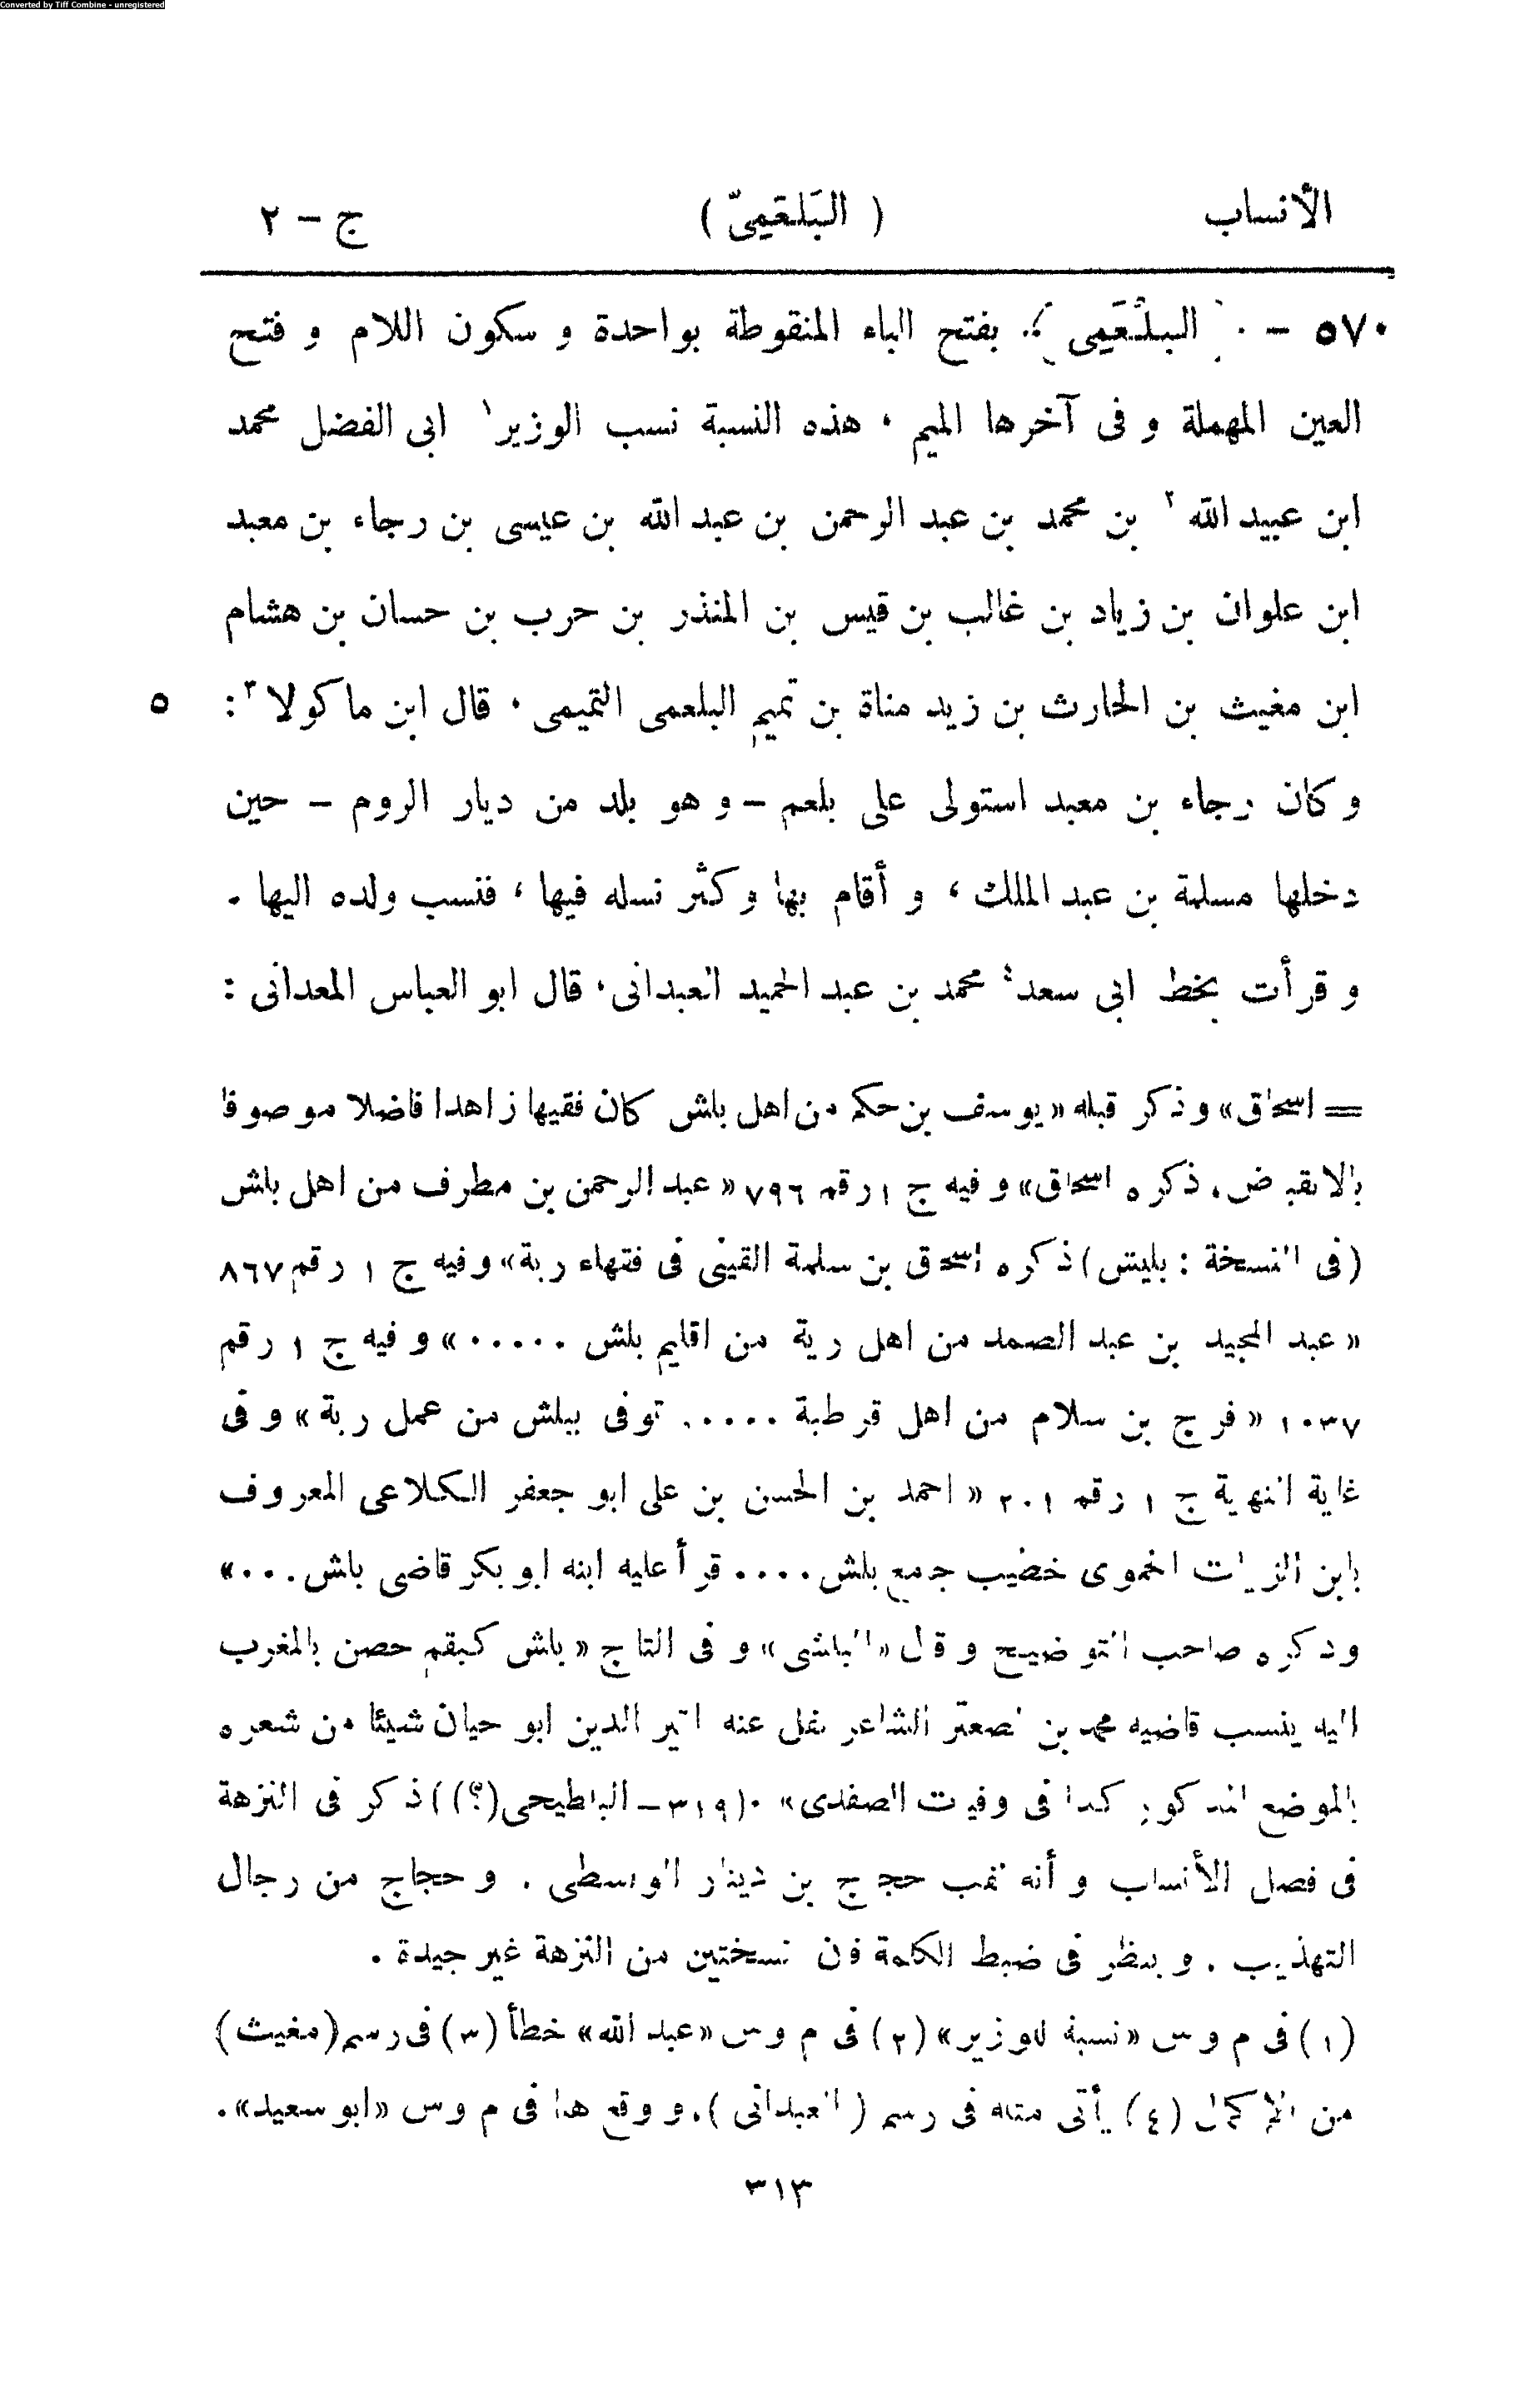 Converted by Tiff Combine - unregistered
الأنساب ( البَلعَمِىّ ) ج – ٢
٥٧٠ – البلْعَمِى . بفتح الباء المنقوطة بواحدة و سكون اللام و فتح
العين المهملة و فى آخرها الميم ، هذه النسبة نسب الوزير١ ابى الفضل محمد
ابن عبيد الله٢ بن محمد بن عبد الرحمن بن عبد الله بن عيسى بن رجاء بن معبد
ابن علوان بن زياد بن غالب بن قيس بن المنذر بن حرب بن حسان بن هشام
ابن مغيث بن الحارث بن زيد مناة بن تميم البلعمى التميمى ، قال ابن ماكولا٣ : ٥
و كان رجاء بن معبد استولى على بلعم – و هو بلد من ديار الروم – حين
دخلها مسلمة بن عبد الملك ، و أقام بها و كثر نسله فيها ، فنسب ولده اليها .
و قرأت بخط ابى سعد٤ محمد بن عبد الحميد العبدانى ، قال ابو العباس المعدانى :
= اسحاق» وذكر قبله «يوسف بن حكم من اهل بلش كان فقيها زاهدا فاضلا موصوفا
بالانقباض ، ذكره اسحاق» و فيه ج ١ رقم ٧٩٦ «عبد الرحمن بن مطرف من اهل بلش
(فى النسخة : بليش) ذكره اسحق بن سلمة القينى فى فقهاء رية» و فيه ج ١ رقم ٨٦٧
«عبد المجيد بن عبد الصمد من اهل رية من اقليم بلش .....» و فيه ج ١ رقم
١٠٣٧ «فرج بن سلام من اهل قرطبة ..... توفى ببلش من عمل رية» و فى
غاية النهاية ج ١ رقم ٢٠١ «احمد بن الحسن بن على ابو جعفر الكلاعى المعروف
بابن الزيات الحموى خطيب جامع بلش .... قرأ عليه ابنه ابو بكر قاضى بلش ...»
وذكره صاحب التوضيح و قال «البلشى» و فى التاج «بلش كبقم حصن بالمغرب
اليه ينسب قاضيه محمد بن الشاعر نقل عنه اثير الدين ابو حيان شيئا من شعره
بالموضع المذكور كذا فى وفيات الصفدى» . (٣١٩ – البلطيحى (؟)) ذكر فى النزهة
فى فصل الأنساب و أنه لقب حجاج بن دينار الواسطى . و حجاج من رجال
التهذيب . و ينظر فى ضبط الكلمة فان نسختين من النزهة غير جيدة .
(١) فى م و س «نسبة للوزير» (٢) فى م و س «عبد الله» خطأ (٣) فى رسم (مغيث)
من الإكمال (٤) يأتى مثله فى رسم (العبدانى) ، و وقع هنا فى م و س «ابو سعيد» .
٣١٣